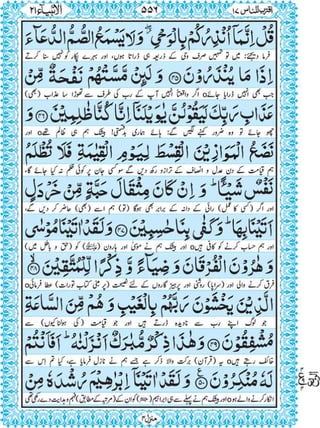 اقترب للناس ۱۷
۵۵۶
الانبیاء ۲۱
قُلْ اِنَّمَاۤ اُنْذِرُكُمْ بِالْوَحْيِ ۖ وَلَا يَسْمَعُ الصُّمُّ الدُّعَآءَ
فرما دیجئے: میں تو تمہیں صرف وحی کے ذریعہ ہی ڈراتا ہوں، اور بہرے پکار کو نہیں سنا کرتے
اِذَا مَا يُنْذَرُوْنَ ۝۴۵ وَلَئِنْ مَّسَّتْهُمْ نَفْحَةٌ مِّنْ
جب بھی انہیں ڈرایا جائے ۝ اگر واقعتاً انہیں آپ کے رب کی طرف سے تھوڑا سا عذاب (بھی)
عَذَابِ رَبِّكَ لَيَقُوْلُنَّ يٰوَيْلَنَاۤ اِنَّا كُنَّا ظٰلِمِيْنَ ۝۴۶ وَ
چھو جائے تو وہ ضرور کہنے لگیں گے: ہائے ہماری بدقسمتی! بیشک ہم ہی ظالم تھے ۝ اور
نَضَعُ الْمَوَازِيْنَ الْقِسْطَ لِيَوْمِ الْقِيٰمَةِ فَلَا تُظْلَمُ
ہم قیامت کے دن عدل و انصاف کے ترازو رکھ دیں گے سو کسی جان پر کوئی ظلم نہ کیا جائے گا،
نَفْسٌ شَيْـًٔا ؕ وَاِنْ كَانَ مِثْقَالَ حَبَّةٍ مِّنْ خَرْدَلٍ
اور اگر (کسی کا عمل) رائی کے دانہ کے برابر بھی ہوگا (تو) ہم اسے (بھی) حاضر کر دیں گے،
اَتَيْنَا بِهَا ؕ وَكَفٰى بِنَا حٰسِبِيْنَ ۝۴۷ وَلَقَدْ اٰتَيْنَا مُوْسٰى
اور ہم حساب کرنے کو کافی ہیں ۝ اور بیشک ہم نے موسٰی اور ہارون (علیہما السلام) کو (حق و باطل میں)
وَهٰرُوْنَ الْفُرْقَانَ وَضِيَآءً وَّذِكْرًا لِّلْمُتَّقِيْنَ ۝۴۸
فرق کرنے والی اور (سراپا) روشنی اور پرہیزگاروں کے لئے نصیحت (پر مبنی کتاب تورات) عطا فرمائی ۝
الَّذِيْنَ يَخْشَوْنَ رَبَّهُمْ بِالْغَيْبِ وَهُمْ مِّنَ السَّاعَةِ
جو لوگ اپنے رب سے نادیدہ ڈرتے ہیں اور جو قیامت (کی ہولناکیوں) سے
مُشْفِقُوْنَ ۝۴۹ وَهٰذَا ذِكْرٌ مُّبٰرَكٌ اَنْزَلْنٰهُ ؕ اَفَاَنْتُمْ
خائف رہتے ہیں ۝ یہ (قرآن) برکت والا ذکر ہے جسے ہم نے نازل فرمایا ہے، کیا تم اس سے
لَهٗ مُنْكِرُوْنَ ۝۵۰ وَلَقَدْ اٰتَيْنَاۤ اِبْرٰهِيْمَ رُشْدَهٗ مِنْ
انکار کرنے والے ہو ۝ اور بیشک ہم نے پہلے سے ہی ابراہیم (علیہ السلام) کو ان کے (مرتبہ کے مطابق) فہم و ہدایت دے رکھی تھی
منزل ۴